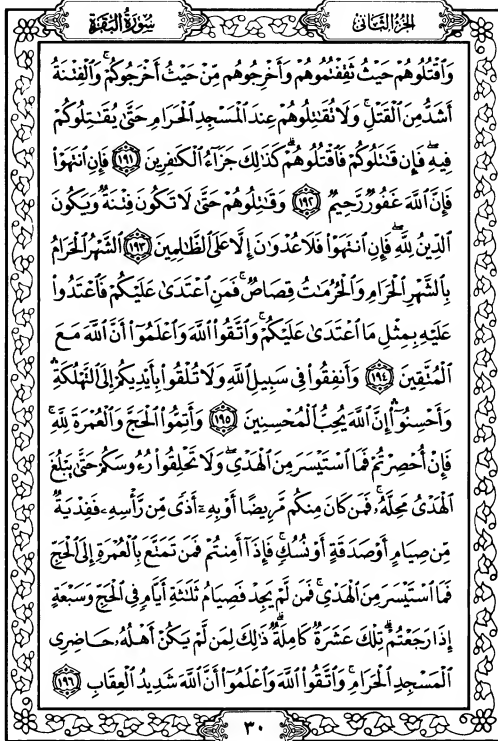 سُورَةُ البَقَرَةِ
الجُزءُ الثَّانِي
وَاقْتُلُوهُمْ حَيْثُ ثَقِفْتُمُوهُمْ وَأَخْرِجُوهُم مِّنْ حَيْثُ أَخْرَجُوكُمْ ۚ وَالْفِتْنَةُ
أَشَدُّ مِنَ الْقَتْلِ ۚ وَلَا تُقَاتِلُوهُمْ عِندَ الْمَسْجِدِ الْحَرَامِ حَتَّىٰ يُقَاتِلُوكُمْ
فِيهِ ۖ فَإِن قَاتَلُوكُمْ فَاقْتُلُوهُمْ ۗ كَذَٰلِكَ جَزَاءُ الْكَافِرِينَ ۝١٩١ فَإِنِ انتَهَوْا
فَإِنَّ اللَّهَ غَفُورٌ رَّحِيمٌ ۝١٩٢ وَقَاتِلُوهُمْ حَتَّىٰ لَا تَكُونَ فِتْنَةٌ وَيَكُونَ
الدِّينُ لِلَّهِ ۖ فَإِنِ انتَهَوْا فَلَا عُدْوَانَ إِلَّا عَلَى الظَّالِمِينَ ۝١٩٣ الشَّهْرُ الْحَرَامُ
بِالشَّهْرِ الْحَرَامِ وَالْحُرُمَاتُ قِصَاصٌ ۚ فَمَنِ اعْتَدَىٰ عَلَيْكُمْ فَاعْتَدُوا
عَلَيْهِ بِمِثْلِ مَا اعْتَدَىٰ عَلَيْكُمْ ۚ وَاتَّقُوا اللَّهَ وَاعْلَمُوا أَنَّ اللَّهَ مَعَ
الْمُتَّقِينَ ۝١٩٤ وَأَنفِقُوا فِي سَبِيلِ اللَّهِ وَلَا تُلْقُوا بِأَيْدِيكُمْ إِلَى التَّهْلُكَةِ ۛ
وَأَحْسِنُوا ۛ إِنَّ اللَّهَ يُحِبُّ الْمُحْسِنِينَ ۝١٩٥ وَأَتِمُّوا الْحَجَّ وَالْعُمْرَةَ لِلَّهِ ۚ
فَإِنْ أُحْصِرْتُمْ فَمَا اسْتَيْسَرَ مِنَ الْهَدْيِ ۖ وَلَا تَحْلِقُوا رُءُوسَكُمْ حَتَّىٰ يَبْلُغَ
الْهَدْيُ مَحِلَّهُ ۚ فَمَن كَانَ مِنكُم مَّرِيضًا أَوْ بِهِ أَذًى مِّن رَّأْسِهِ فَفِدْيَةٌ
مِّن صِيَامٍ أَوْ صَدَقَةٍ أَوْ نُسُكٍ ۚ فَإِذَا أَمِنتُمْ فَمَن تَمَتَّعَ بِالْعُمْرَةِ إِلَى الْحَجِّ
فَمَا اسْتَيْسَرَ مِنَ الْهَدْيِ ۚ فَمَن لَّمْ يَجِدْ فَصِيَامُ ثَلَاثَةِ أَيَّامٍ فِي الْحَجِّ وَسَبْعَةٍ
إِذَا رَجَعْتُمْ ۗ تِلْكَ عَشَرَةٌ كَامِلَةٌ ۗ ذَٰلِكَ لِمَن لَّمْ يَكُنْ أَهْلُهُ حَاضِرِي
الْمَسْجِدِ الْحَرَامِ ۚ وَاتَّقُوا اللَّهَ وَاعْلَمُوا أَنَّ اللَّهَ شَدِيدُ الْعِقَابِ ۝١٩٦
٣٠